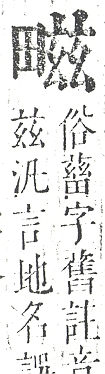 𭻾
俗葘字舊註音
茲汎言地名誤